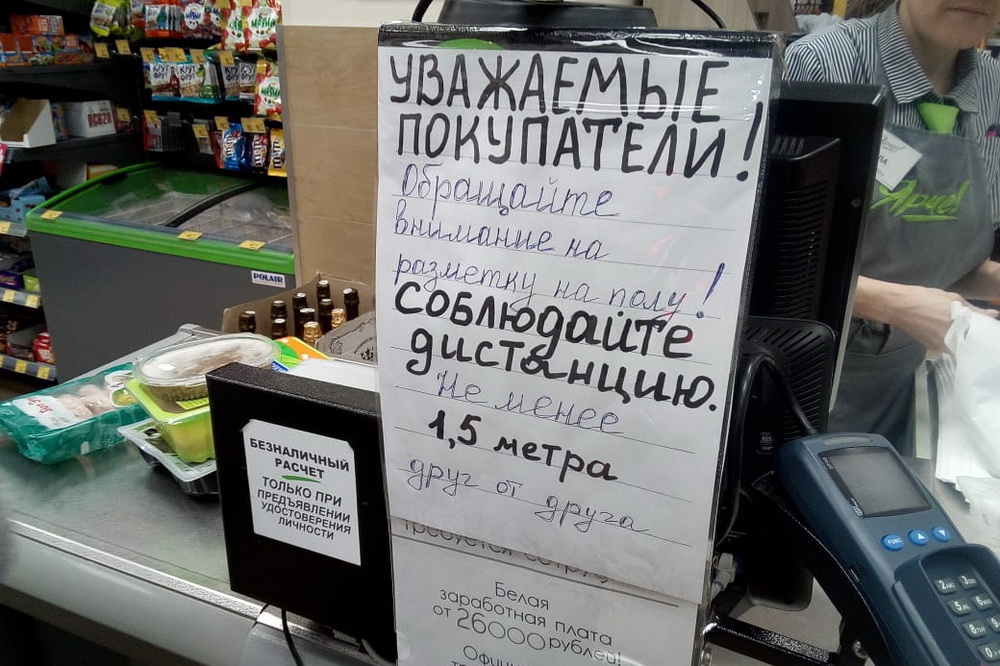 УВАЖАЕМЫЕ
ПОКУПАТЕЛИ!
Обращайте
внимание на
разметку на полу!
СОБЛЮДАЙТЕ
дистанцию.
Не менее
1,5 метра
друг от друга
Белая
заработная плата
от 26000 рублей!
БЕЗНАЛИЧНЫЙ
РАСЧЕТ
ТОЛЬКО ПРИ
ПРЕДЪЯВЛЕНИИ
УДОСТОВЕРЕНИЯ
ЛИЧНОСТИ
POLAIR
Ярче!
FUNC